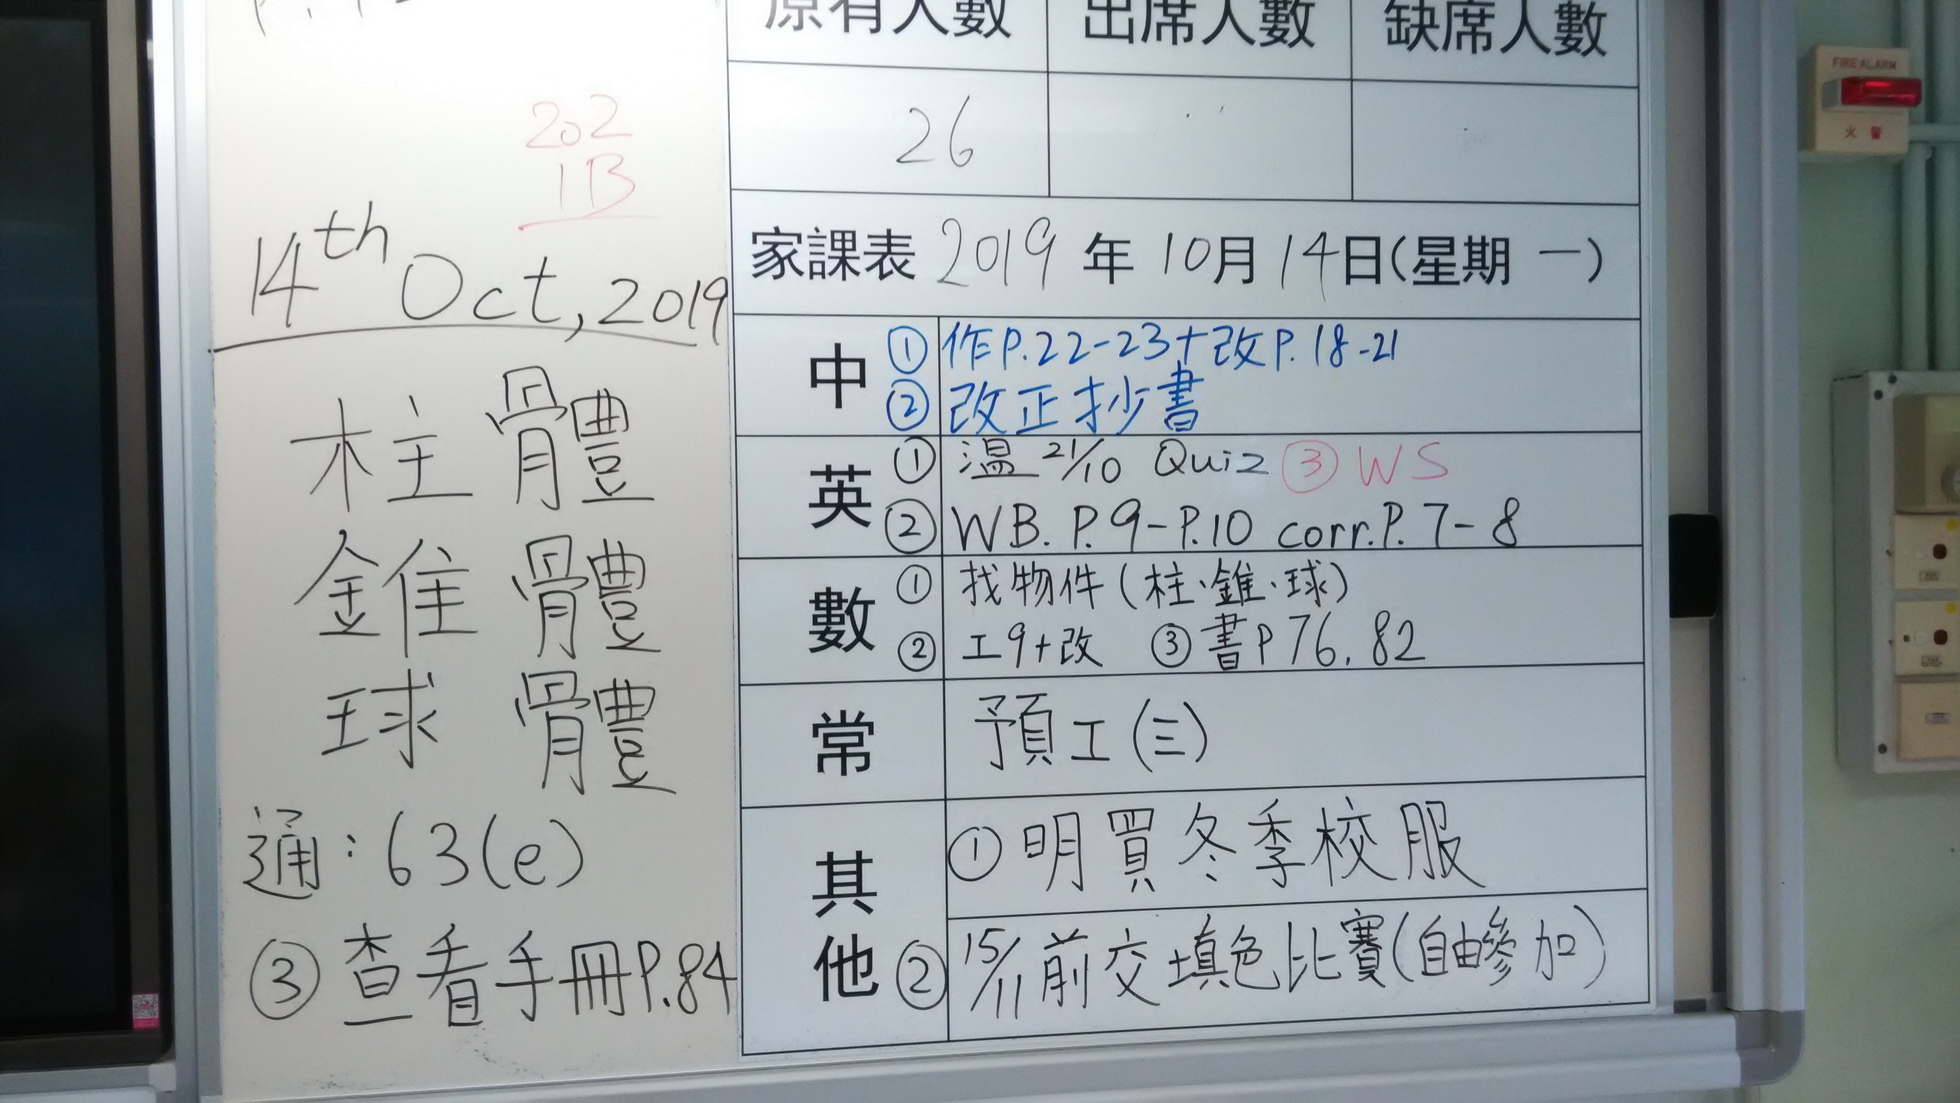 202
1B
14th Oct, 2019
柱 體
錐 體
球 體
通：63(e)
③ 查看手冊P.84
原有人數 出席人數 缺席人數
26
家課表 2019 年 10月 14日(星期 一)
中 ① 作P.22-23+改P.18-21
② 改正抄書
英 ① 溫 21/10 Quiz ③ WS
② WB. P.9-P.10 corr.P.7-8
數 ① 找物件(柱、錐、球)
② 工9+改 ③ 書P76.82
常 預工(三)
其他 ① 明買冬季校服
② 15/11前交填色比賽(自由參加)
FIRE ALARM
火 警